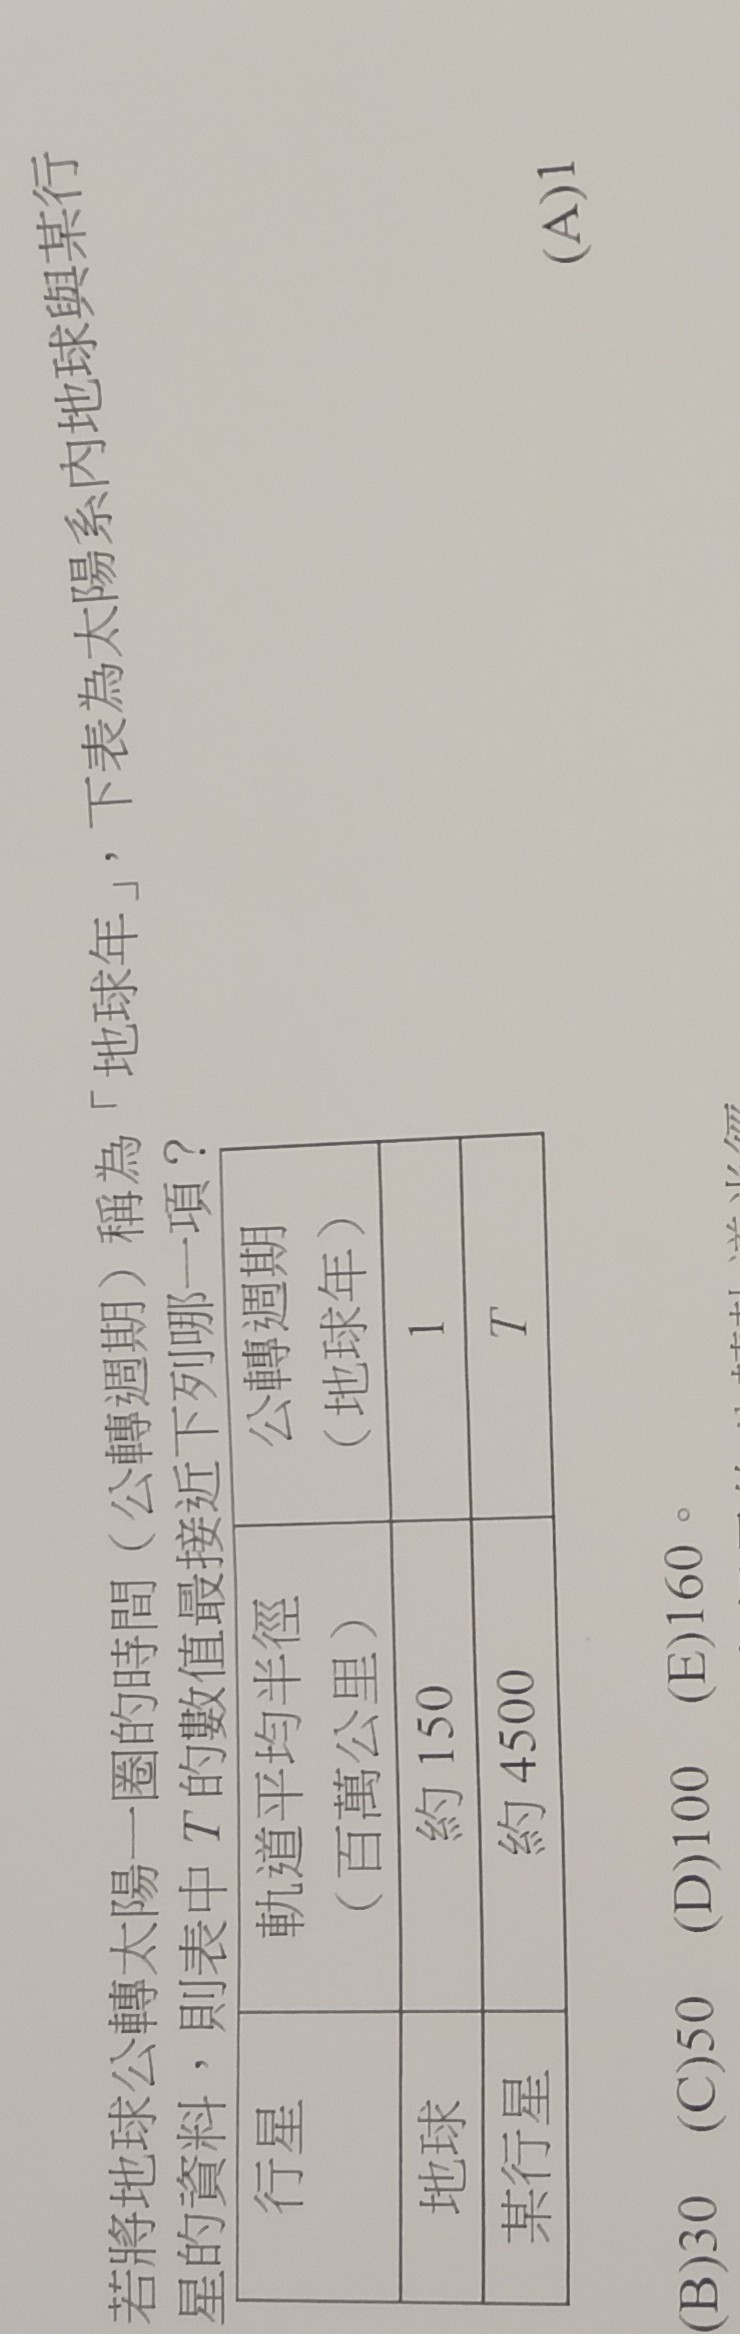 若將地球公轉太陽一圈的時間（公轉週期）稱為「地球年」，下表為太陽系內地球與某行
星的資料，則表中 T 的數值最接近下列哪一項？
行星 軌道平均半徑（百萬公里） 公轉週期（地球年）
地球 約 150 1
某行星 約 4500 T
(A)1
(B)30 (C)50 (D)100 (E)160。